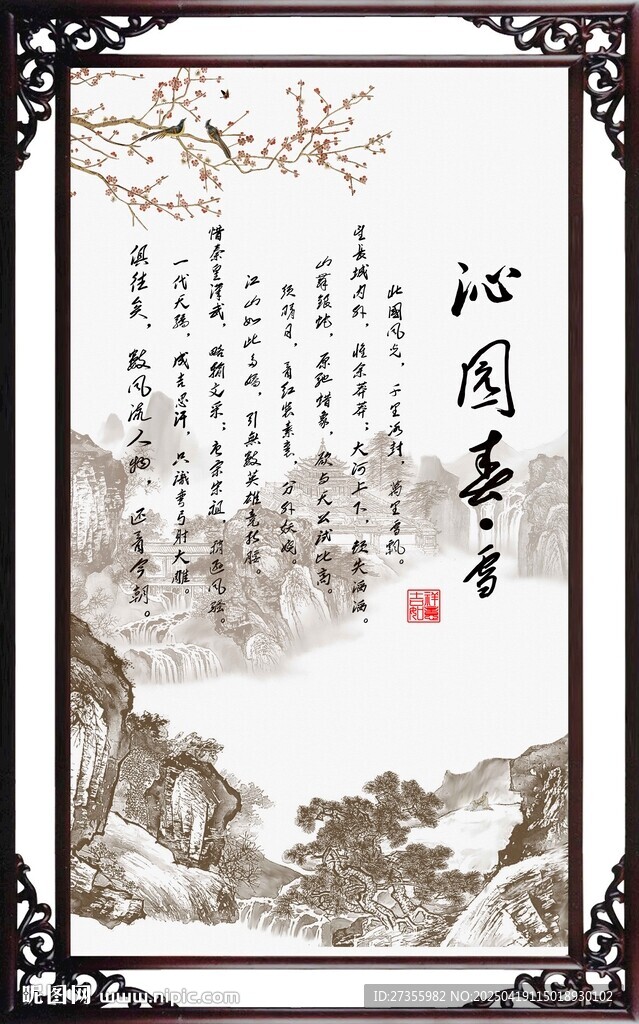 沁园春·雪
北國风光，千里冰封，萬里雪飘。
望長城内外，惟余莽莽；大河上下，顿失滔滔。
山舞银蛇，原驰蜡象，欲与天公试比高。
须晴日，看红装素裹，分外妖娆。
江山如此多娇，引無數英雄竞折腰。
惜秦皇漢武，略输文采；唐宗宋祖，稍逊风骚。
一代天骄，成吉思汗，只識弯弓射大雕。
俱往矣，數风流人物，还看今朝。
昵图网 www.nipic.com
ID:27355982 NO:20250419115018930102